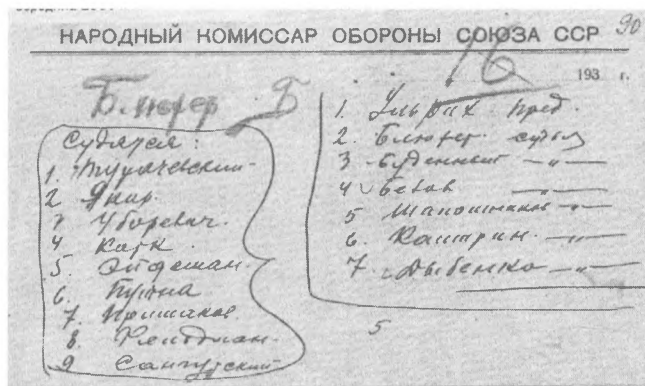 НАРОДНЫЙ КОМИССАР ОБОРОНЫ СОЮЗА ССР
90
16
193 г.
Блюхер Б
Судятся:
1. Тухачевский
2 Якир
3 Уборевич
4 Корк
5. Эйдеман
6. Путна
7. Примаков
8. Фельдман
9 Сангурский
1. Ульрих пред.
2. Блюхер судья
3 Буденный — „ —
4 Белов — „ —
5 Шапошников — „ —
6. Каширин — „ —
7. Дыбенко — „ —
5